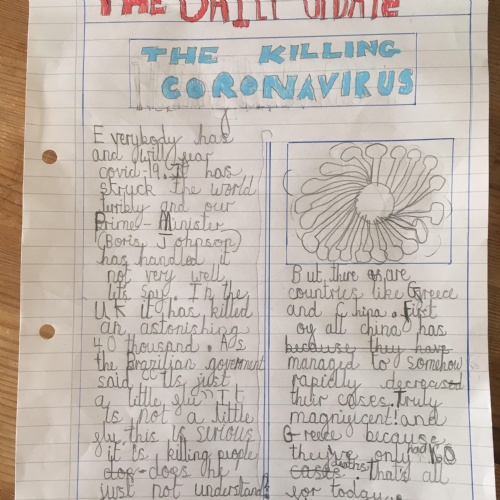 THE DAILY UPDATE
THE KILLING
CORONAVIRUS
Everybody has
and will year
covid-19. It has
struck the world
and our
Prime-Minister
(Boris Johnson)
has handled it
not very well
lets say. In the
UK it has killed
an astonishing
40 thousand. As
the Brazilian government
said "Its just
a little flu" It
is not a little
flu this is serious
it is killing people
does he
just not understand
But, there are
countries like Greece
and China. First
of all china has
because they have
managed to somehow
rapidly decreased
their cases. Truly
magnivicent! and
Greece because
they've only had 160
cases deaths that's all
for today.